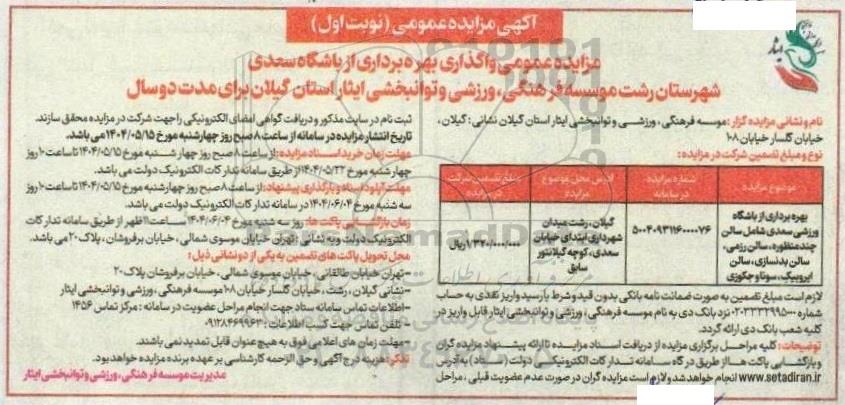 آگهی مزایده عمومی (نوبت اول)
مزایده عمومی واگذاری بهره برداری از باشگاه سعدی
شهرستان رشت موسسه فرهنگی، ورزشی و توانبخشی ایثار استان گیلان برای مدت دو سال
نام و نشانی مزایده گزار: موسسه فرهنگی، ورزشی و توانبخشی ایثار استان گیلان نشانی: گیلان،
خیابان گلسار خیابان ۱۰۸
نوع و مبلغ تضمین شرکت در مزایده:
موضوع مزایده
شماره مزایده در سامانه
آدرس محل موضوع مزایده
مبلغ تضمین شرکت در مزایده
بهره برداری از باشگاه
ورزشی سعدی شامل سالن
چندمنظوره، سالن رزمی،
سالن بدنسازی، سالن
ایروبیک، سونا و جکوزی
۵۰۰۴۰۹۳۱۱۶۰۰۰۰۷۶
گیلان، رشت میدان
شهرداری ابتدای خیابان
سعدی، کوچه گیلانتور
سابق
۱/۳۲۰/۰۰۰/۰۰۰ ریال
لازم است مبلغ تضمین به صورت ضمانت نامه بانکی بدون قید و شرط یا رسید واریز نقدی به حساب
شماره ۰۲۰۳۳۳۲۹۹۵۰۰۰ نزد بانک دی به نام موسسه فرهنگی، ورزشی و توانبخشی ایثار قابل واریز در
کلیه شعب بانک دی ارائه گردد.
توضیحات: کلیه مراحل برگزاری مزایده از دریافت اسناد مزایده تا ارائه پیشنهاد مزایده گران
و بازگشایی پاکت ها از طریق درگاه سامانه تدارکات الکترونیکی دولت (ستاد) به آدرس
www.setadiran.ir انجام خواهد شد و لازم است مزایده گران در صورت عدم عضویت قبلی، مراحل
ثبت نام در سایت مذکور و دریافت گواهی امضای الکترونیکی را جهت شرکت در مزایده محقق سازند.
تاریخ انتشار مزایده در سامانه از ساعت ۸ صبح روز چهارشنبه مورخ ۱۴۰۴/۰۵/۱۵ می باشد.
مهلت زمان خرید اسناد مزایده: از ساعت ۸ صبح روز چهار شنبه مورخ ۱۴۰۴/۰۵/۱۵ تا ساعت ۱۰ روز
چهارشنبه مورخ ۱۴۰۴/۰۵/۲۲ از طریق سامانه تدارکات الکترونیک دولت می باشد.
مهلت آپلود اسناد و بارگذاری پیشنهاد: از ساعت ۸ صبح روز چهارشنبه مورخ ۱۴۰۴/۰۵/۱۵ تا ساعت ۱۰ روز
سه شنبه مورخ ۱۴۰۴/۰۶/۰۴ در سامانه تدارکات الکترونیک دولت می باشد.
زمان بازگشایی پاکت ها: روز سه شنبه مورخ ۱۴۰۴/۰۶/۰۴ ساعت ۱۱ ظهر از طریق سامانه تدارکات
الکترونیک دولت و به نشانی: تهران خیابان موسوی شمالی، خیابان برفروشان، پلاک ۲۰ می باشد.
محل تحویل پاکت های تضمین به یکی از دو نشانی ذیل:
- تهران خیابان طالقانی، خیابان موسوی شمالی، خیابان برفروشان پلاک ۲۰
- نشانی گیلان، رشت، خیابان گلسار خیابان ۱۰۸ موسسه فرهنگی، ورزشی و توانبخشی ایثار
- اطلاعات تماس سامانه ستاد جهت انجام مراحل عضویت در سامانه: مرکز تماس ۱۴۵۶
- تلفن تماس جهت کسب اطلاعات: ۰۹۱۲۸۴۶۹۹۶۳
- مهلت زمان های اعلامی فوق به هیچ عنوان قابل تمدید نمی باشند.
تذکر: هزینه درج آگهی و حق الزحمه کارشناسی بر عهده برنده مزایده خواهد بود.
مدیریت موسسه فرهنگی، ورزشی و توانبخشی ایثار